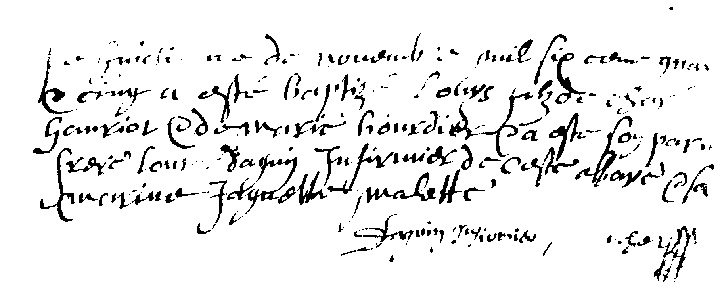 Le huictie me de novembre mil six cens quar
& cinq a esté baptizé Louys filz de Char
hanriot & de marie bourdier & a esté son parr
frere Louis Daguin Infirmier de ceste abbaye & sa
marine Jaquette malette
Daguin Infirmier,